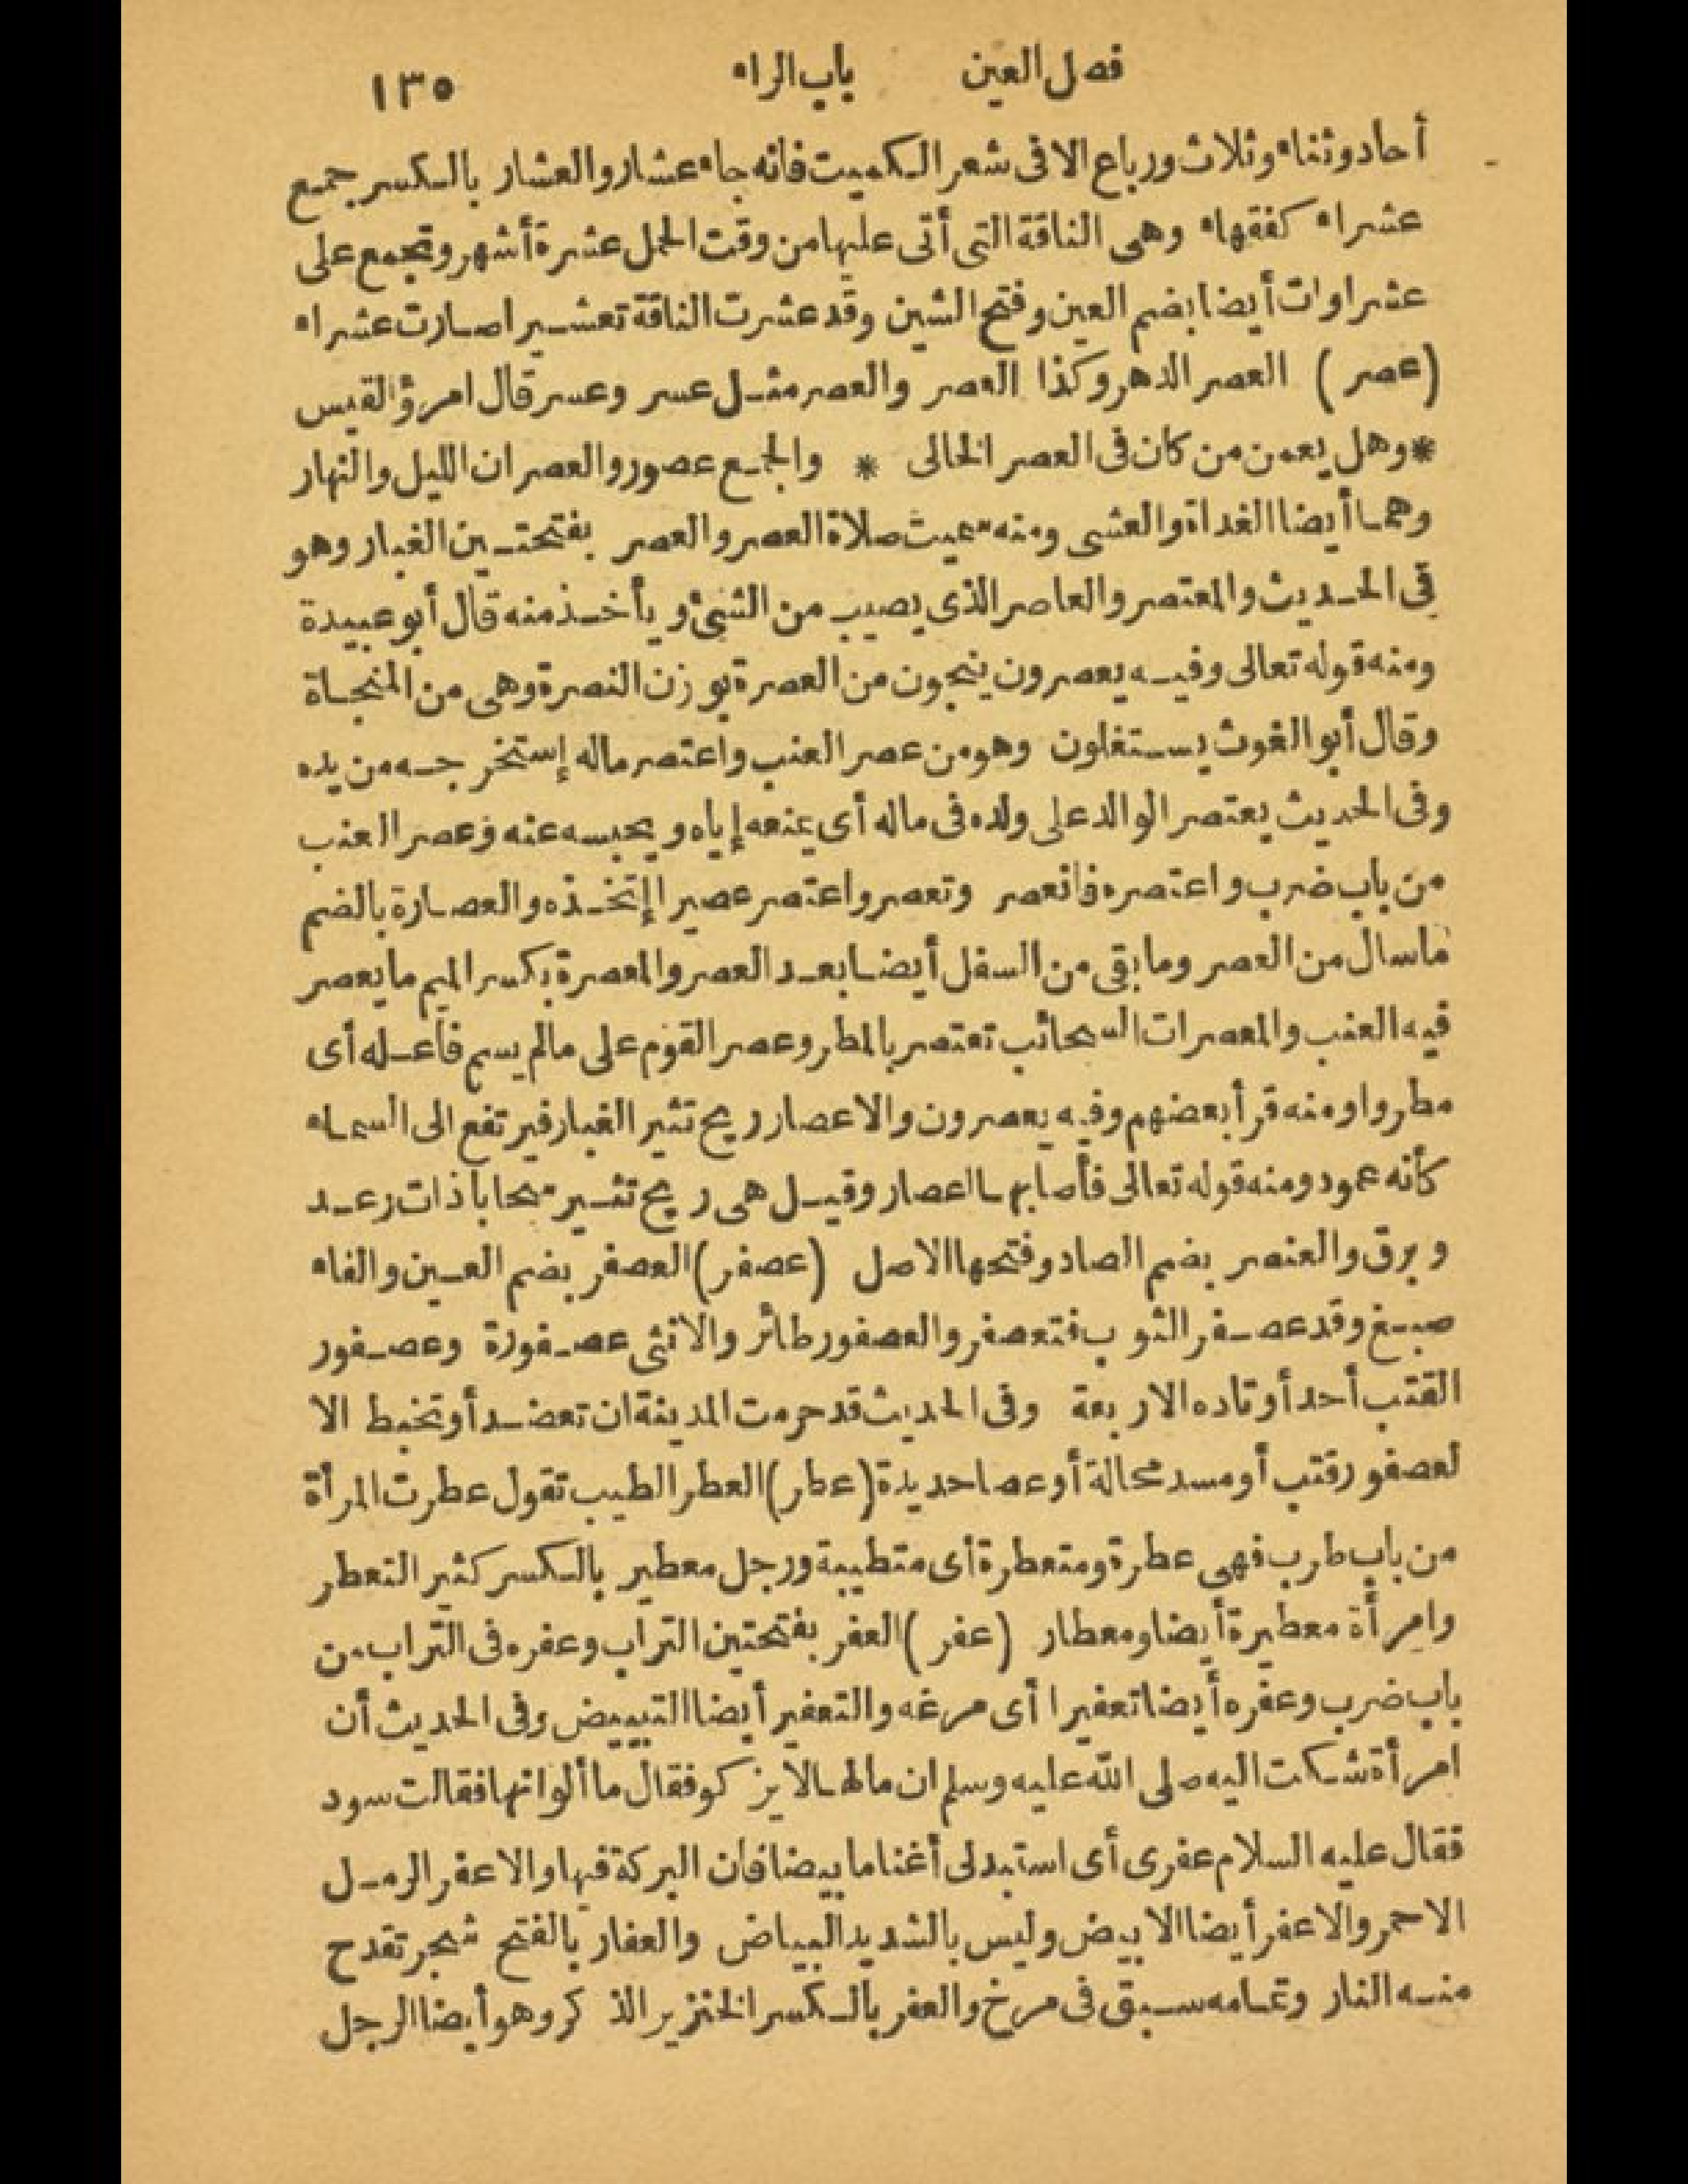 فصل العين باب الراء ١٣٥
أحاد وثناء وثلاث ورباع الا فى شعر الكميت فانه جاء عشار والعشار بالكسر جمع
عشراء كفقهاء وهى الناقة التى أتى عليها من وقت الحمل عشرة أشهر وتجمع على
عشراوات أيضا بضم العين وفتح الشين وقد عشرت الناقة تعشيرا صارت عشراء
(عصر) العصر الدهر وكذا العصر والعصر مثل عسر وعسر قال امرؤ القيس
* وهل يعمن من كان فى العصر الخالى * والجمع عصور والعصران الليل والنهار
وهما أيضا الغداة والعشى ومنه سميت صلاة العصر والعصر بفتحتين الغبار وهو
فى الحديث والمعتصر والعاصر الذى يصيب من الشئ ويأخذ منه قال أبو عبيدة
ومنه قوله تعالى وفيه يعصرون ينجون من العصرة بوزن النصرة وهى من المنجاة
وقال أبو الغوث يستغلون وهو من عصر العنب واعتصر ماله إستخرجه من يده
وفى الحديث يعتصر الوالد على ولده فى ماله أى يمنعه إياه ويحبسه عنه وعصر العنب
من باب ضرب واعتصره فانعصر وتعصر واعتصر عصيرا إتخذه والعصارة بالضم
ما سال من العصر وما بقى من السفل أيضا بعد العصر والمعصرة بكسر الميم ما يعصر
فيه العنب والمعصرات السحائب تعتصر بالمطر وعصر القوم على مالم يسم فاعله أى
مطروا ومنه قرأ بعضهم وفيه يعصرون والاعصار ريح تثير الغبار فيرتفع الى السماء
كأنه عمود ومنه قوله تعالى فأصابها اعصار وقيل هى ريح تثير سحابا ذات رعد
وبرق والعنصر بضم الصاد وفتحها الاصل (عصفر) العصفر بضم العين والفاء
صبغ وقد عصفر الثوب فتعصفر والعصفور طائر والانثى عصفورة وعصفور
القتب أحد أوتاده الاربعة وفى الحديث قد حرمت المدينة ان تعضد أو تخبط الا
لعصفور قتب أو مسد محالة أو عصا حديدة (عطر) العطر الطيب تقول عطرت المرأة
من باب طرب فهى عطرة ومتعطرة أى متطيبة ورجل معطير بالكسر كثير التعطر
وامرأة معطيرة أيضا ومعطار (عفر) العفر بفتحتين التراب وعفره فى التراب من
باب ضرب وعفره أيضا تعفيرا أى مرغه والتعفير أيضا التبييض وفى الحديث أن
امرأة شكت اليه صلى الله عليه وسلم ان مالها لا يزكو فقال ما ألوانها فقالت سود
فقال عليه السلام عفرى أى استبدلى أغناما بيضا فان البركة فيها والاعفر الرمل
الاحمر والاعفر أيضا الابيض وليس بالشديد البياض والعفار بالفتح شجر تقدح
منه النار وتمامه سبق فى مرخ والعفر بالكسر الخنزير الذكر وهو أيضا الرجل